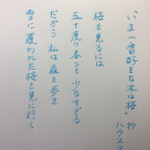 "いま一番好きな木は桜" 抄
ハウスマン
桜を見るには
五十度の春でも少なすぎる
だから私は森を歩き
雪に覆われた桜を見に行く